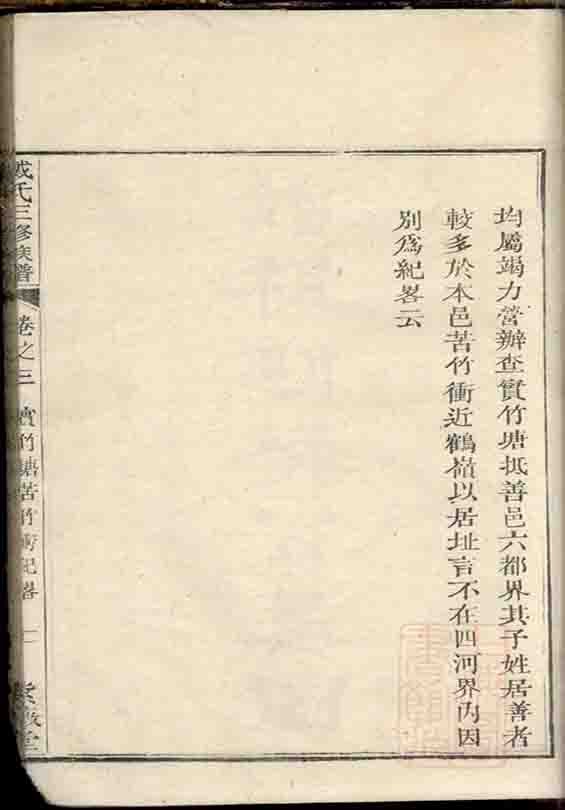 均屬竭力營辦查實竹塘抵善邑六都界其子姓居善者
較多於本邑苦竹衝近鶴嶺以居址言不在四河界內因
別為紀畧云
氏三修族譜
卷之三
實竹塘苦竹衝紀畧
堂